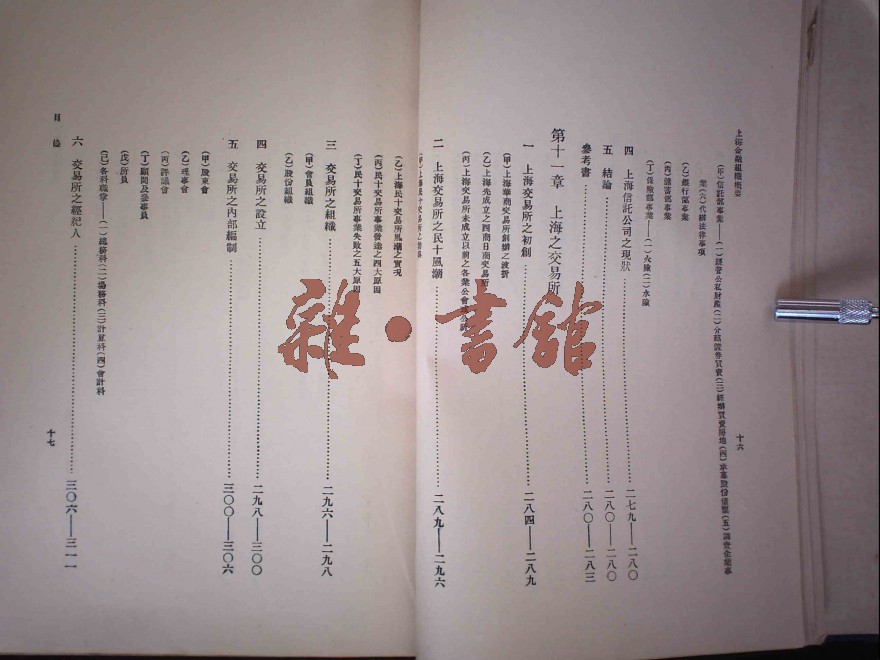 上海金融組織概要
十六
(甲)信託部事業——(一)經營公私財產(二)分經證券買賣(三)經辦買賣房地(四)承募股份債票(五)調查企業事
業(六)代辦法律事項
(乙)銀行部事業
(丙)儲蓄部事業
(丁)保險部事業——(一)火險(二)水險
四 上海信託公司之現狀……二七九——二八〇
五 結論……二八〇——二八〇
參考書……二八〇——二八三
第十一章 上海之交易所
一 上海交易所之初創……二八四——二八九
(甲)上海華商交易所創辦之波折
(乙)上海先成立之四商日商交易所
(丙)上海交易所未成立以前之各業公會
二 上海交易所之民十風潮……二八九——二九六
(甲)上海民十交易所之
(乙)上海民十交易所風潮之實況
(丙)民十交易所事業發達之四大原因
(丁)民十交易所事業失敗之五大原因
三 交易所之組織……二九六——二九八
(甲)會員組織
(乙)股份組織
四 交易所之設立……二九八——三〇〇
五 交易所之內部編制……三〇〇——三〇六
(甲)股東會
(乙)理事會
(丙)評議會
(丁)顧問及參事員
(戊)所員
(己)各科職掌——(一)總務科(二)場務科(三)計算科(四)會計科
六 交易所之經紀人……三〇六——三一一
目錄
十七
雜·書館